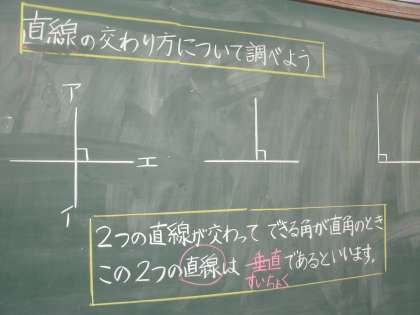 直線の交わり方について調べよう
ア
エ
イ
2つの直線が交わって できる角が直角のとき
この2つの直線は 垂直であるといいます。
すいちょく